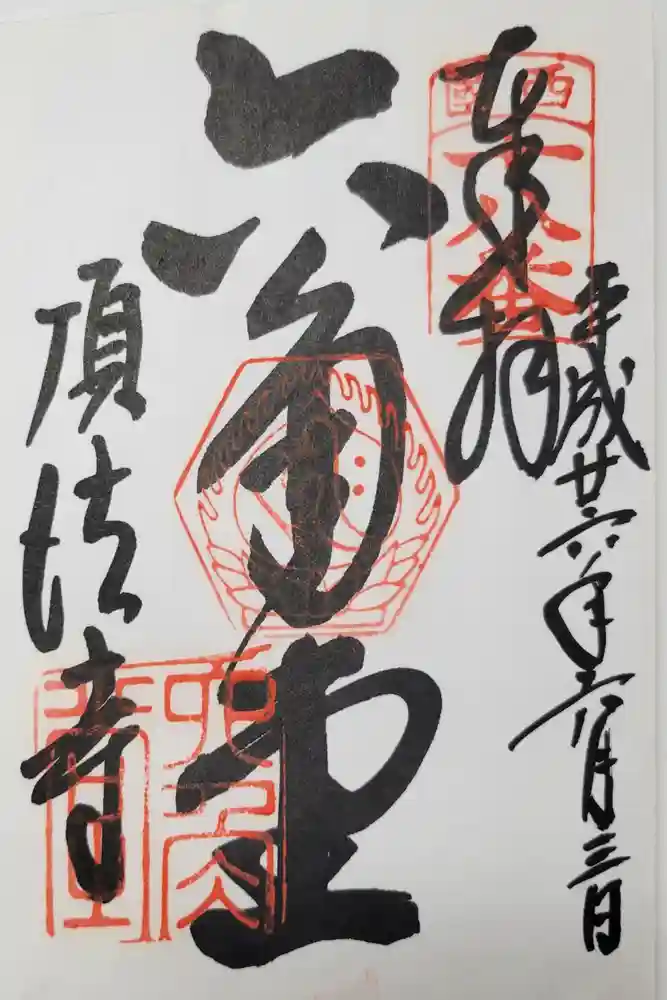 奉拝
平成廿六年六月三日
西国
十八番
六角堂
頂法寺